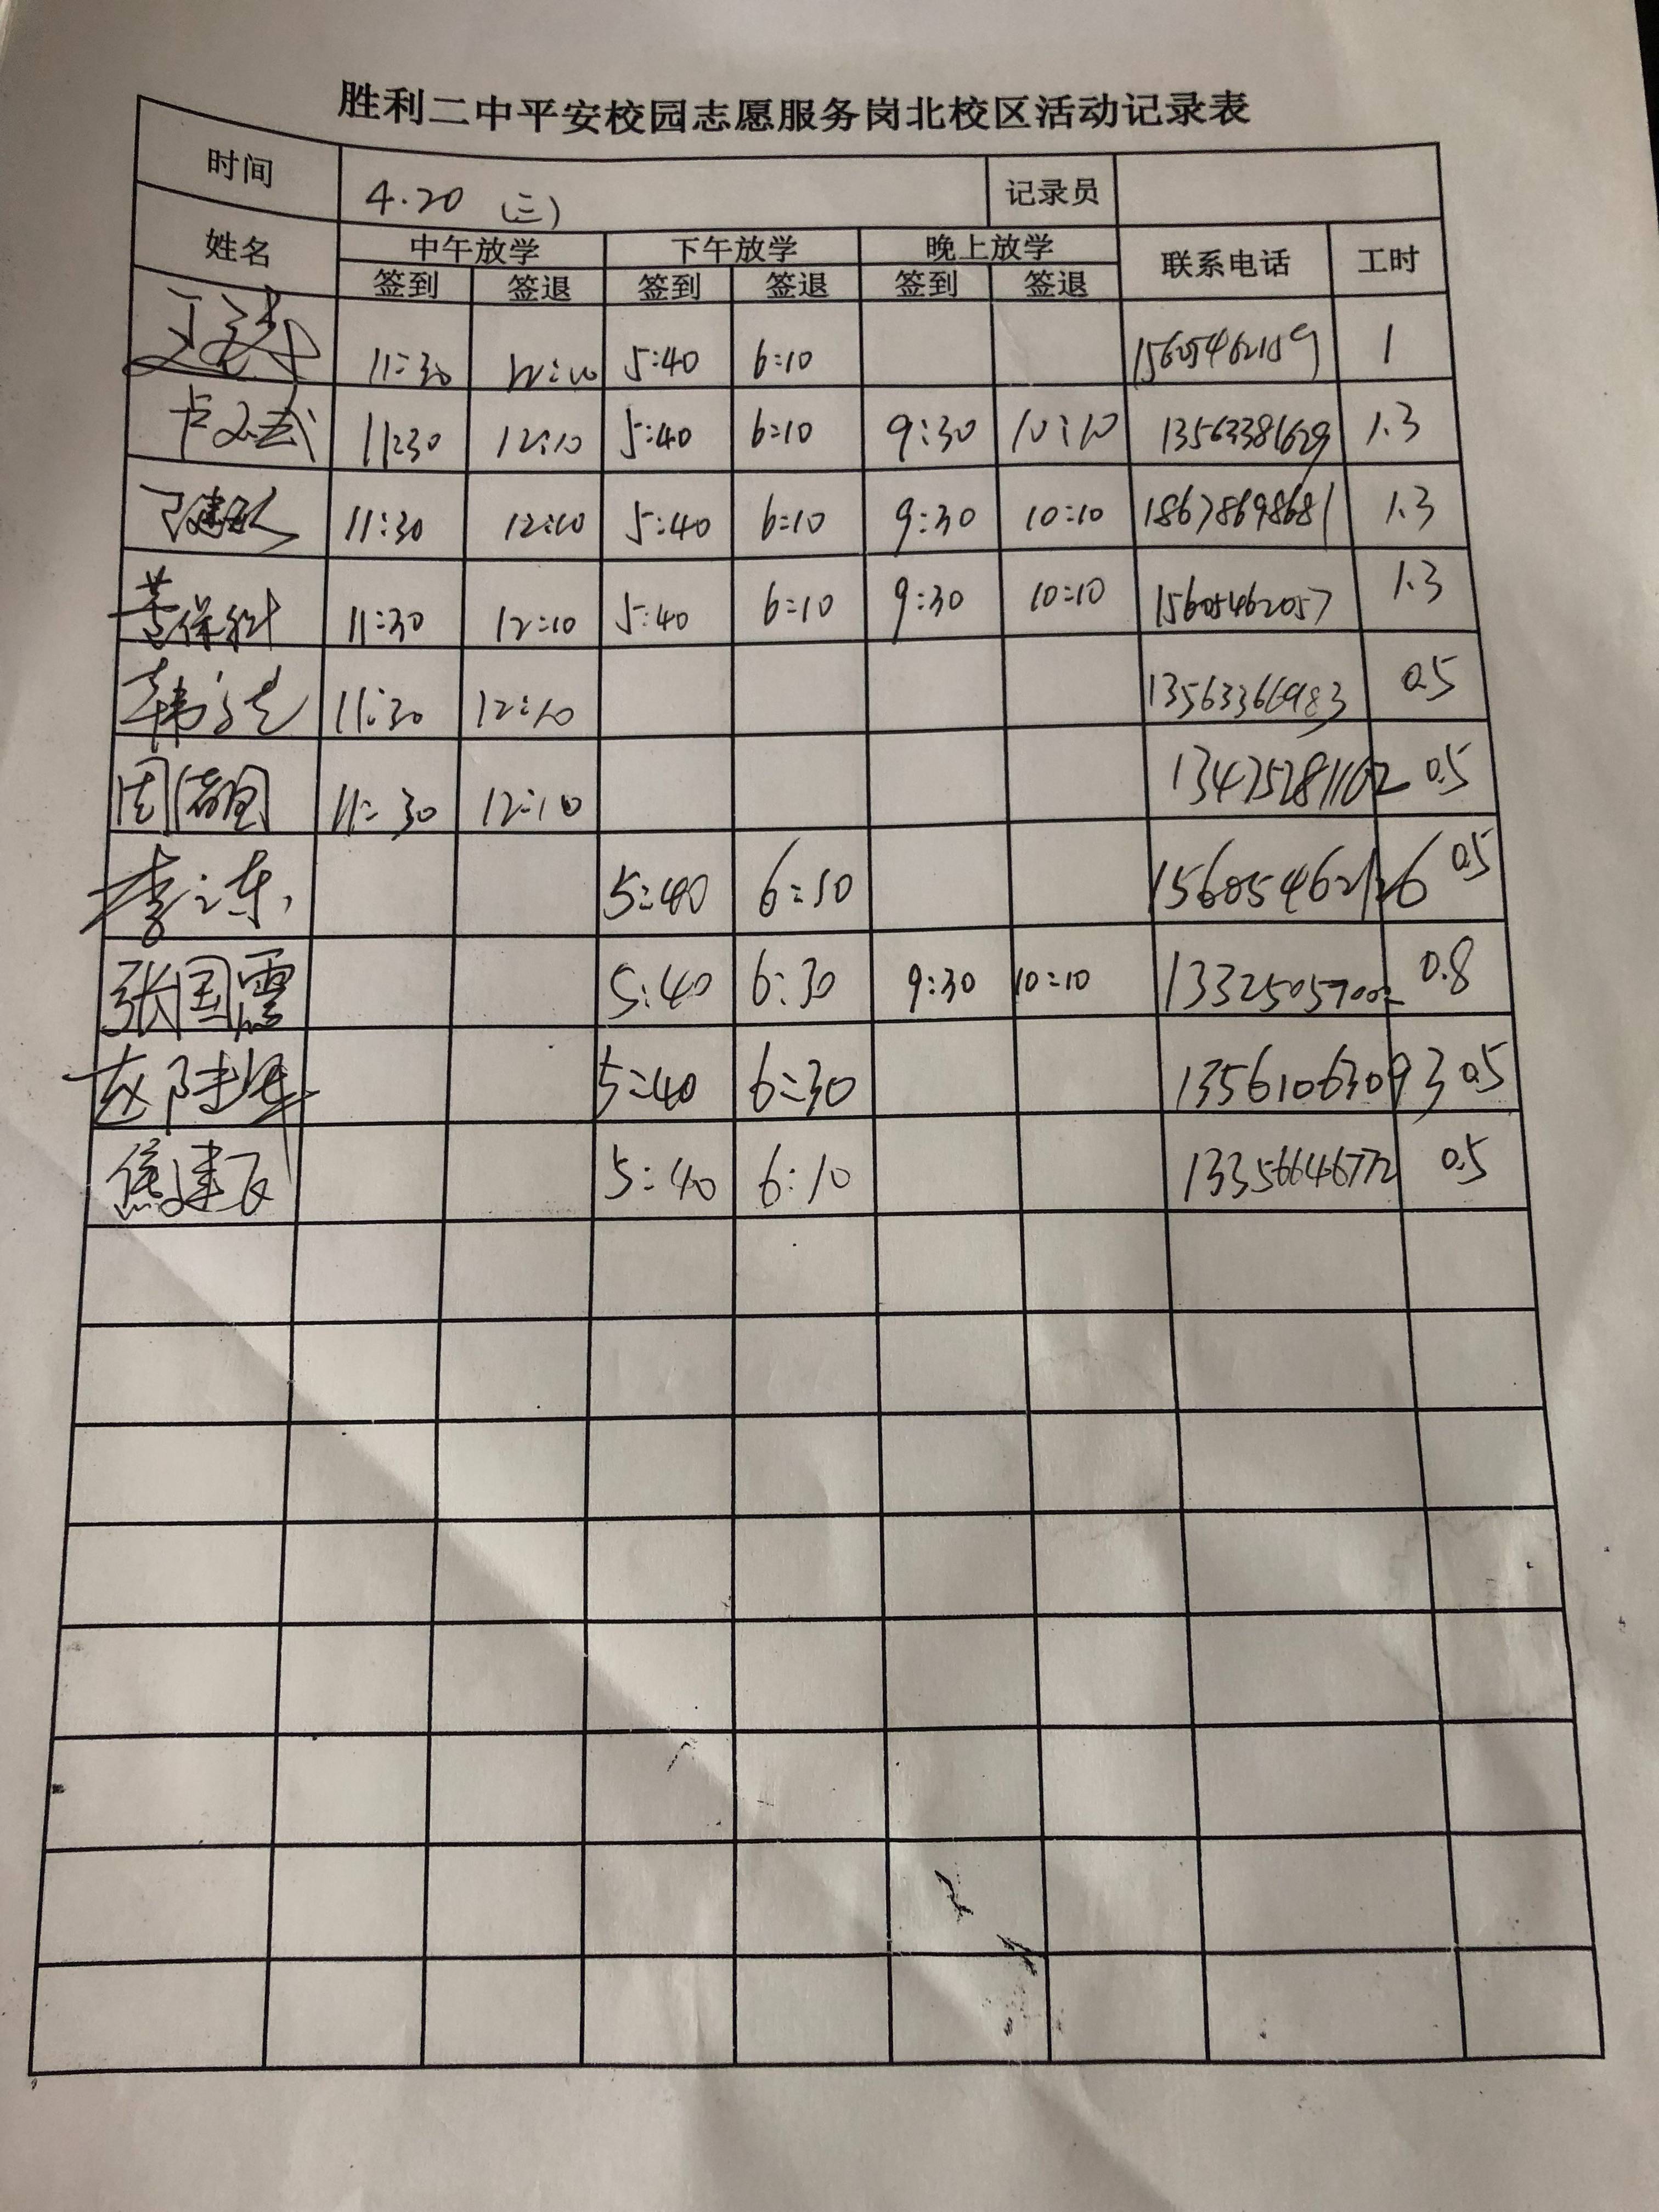 胜利二中平安校园志愿服务岗北校区活动记录表
时间 4.20 (三) 记录员
姓名 中午放学 下午放学 晚上放学 联系电话 工时
签到 签退 签到 签退 签到 签退
11:30 12:10 5:40 6:10 15605462109 1
11:30 12:10 5:40 6:10 9:30 10:10 13563381629 1.3
11:30 12:10 5:40 6:10 9:30 10:10 18678698681 1.3
11:30 12:10 5:40 6:10 9:30 10:10 15605462057 1.3
11:30 12:10 13563366983 0.5
11:30 12:10 13475281102 0.5
5:40 6:10 15605462126 0.5
张国震 5:40 6:30 9:30 10:10 0.8
5:40 6:30 13561063093 0.5
焦建飞 5:40 6:10 13356646772 0.5